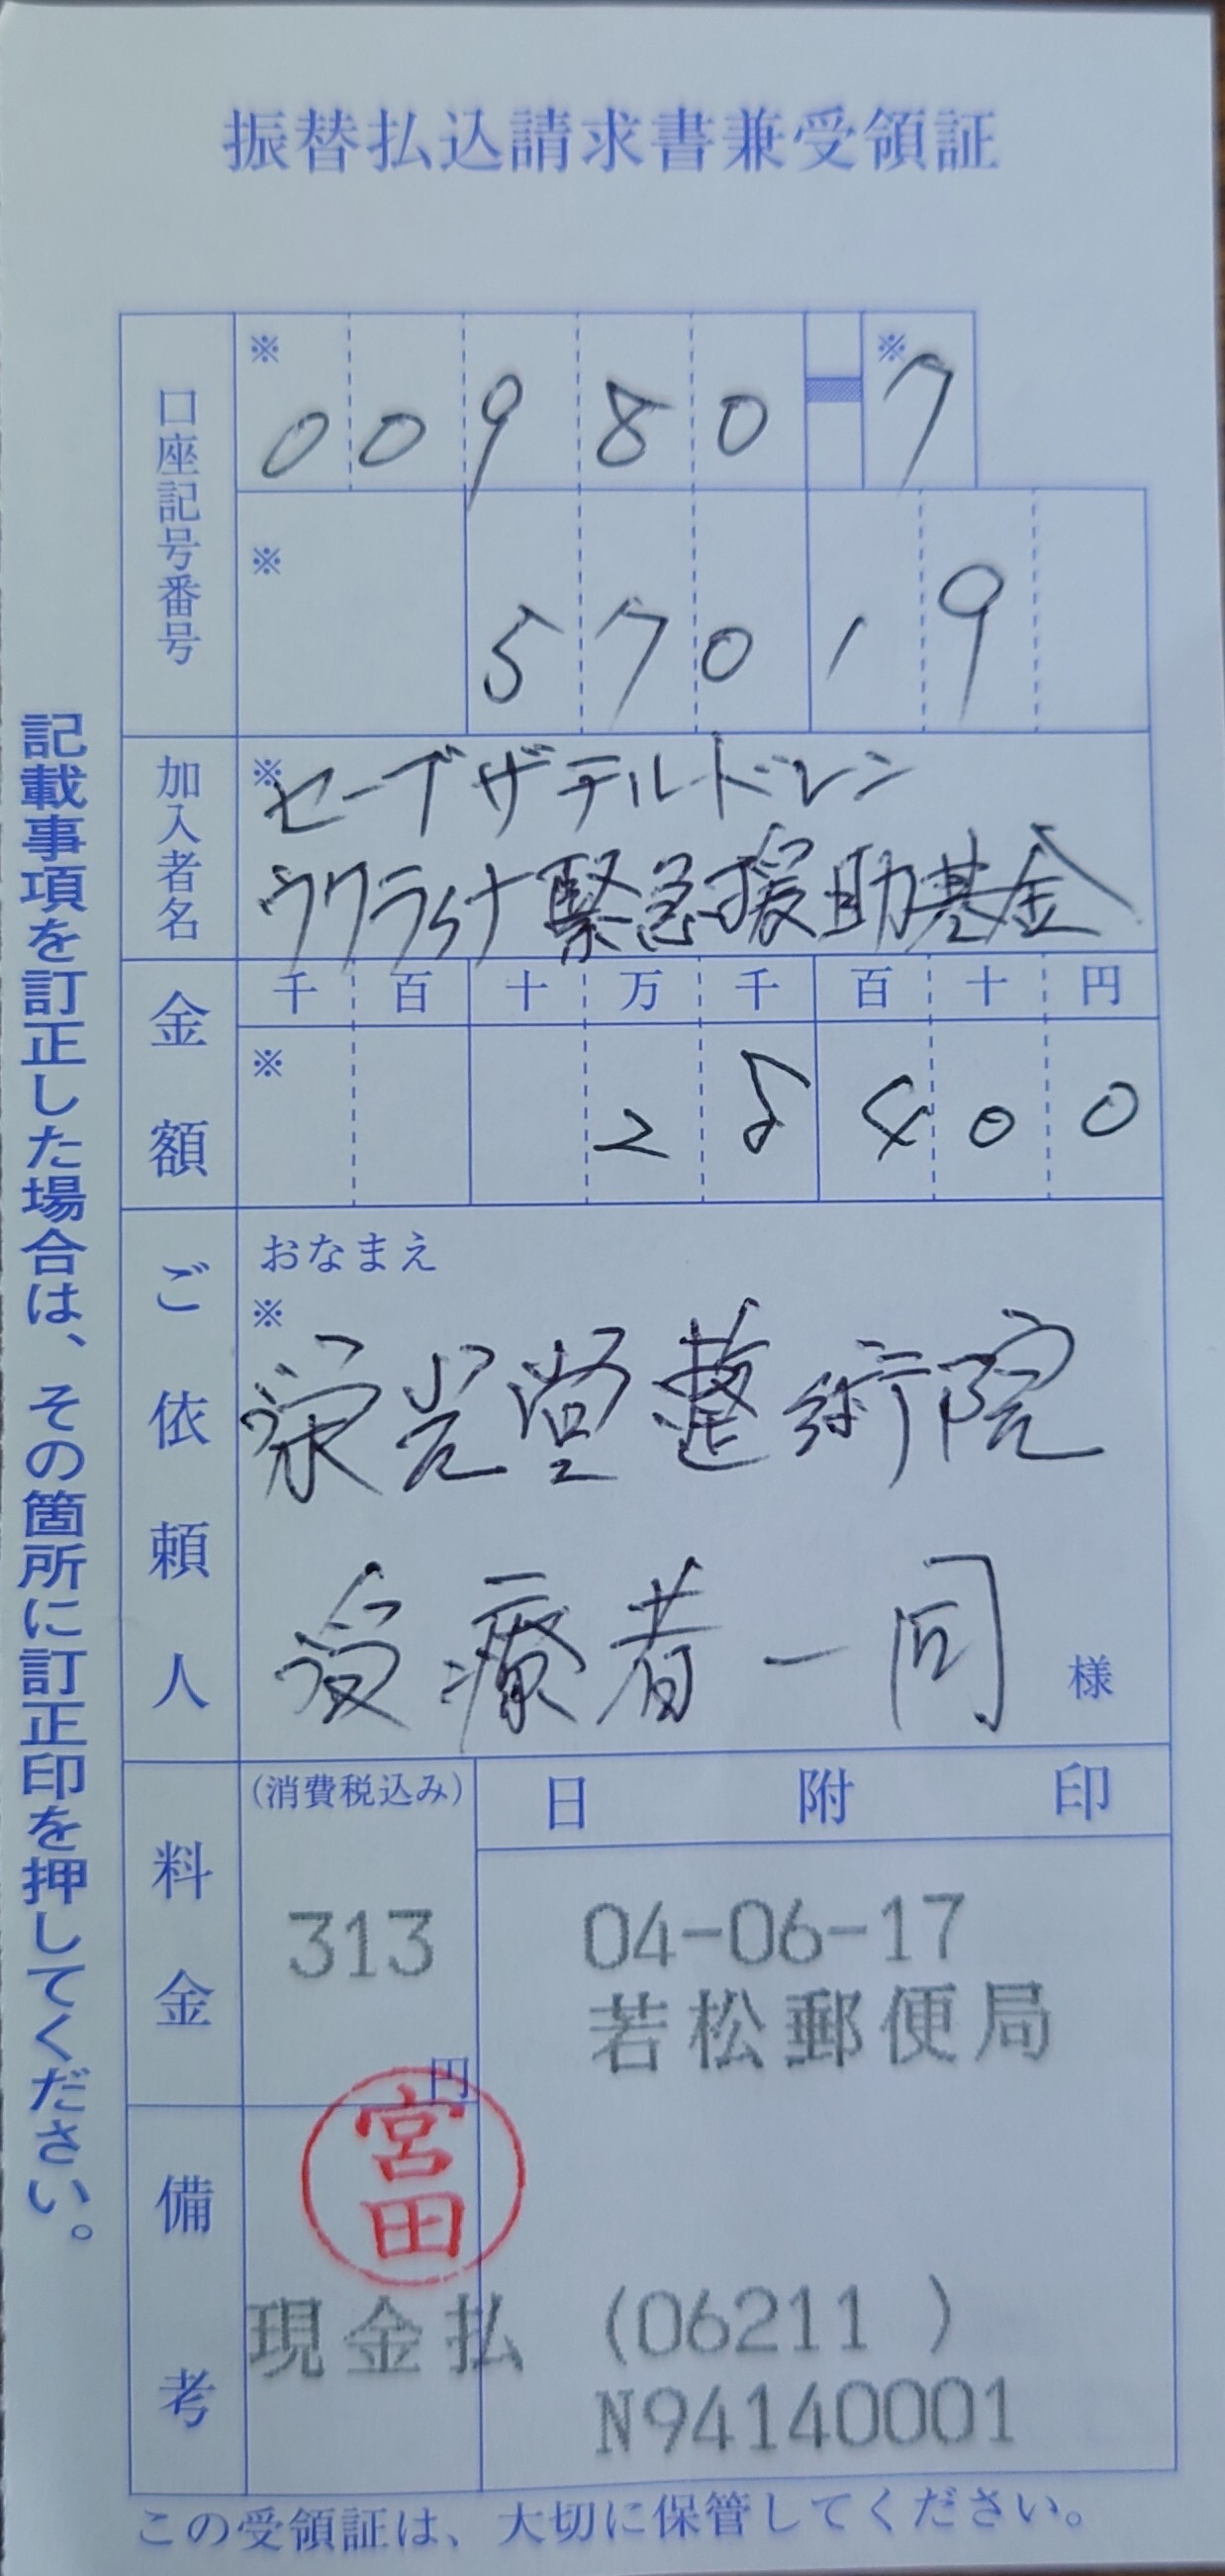 振替払込請求書兼受領証
口座記号番号
※
00980-
※
7
※
57019
加入者名
※
セーブザチルドレン
ウクライナ緊急援助基金
金額
千 百 十 万 千 百 十 円
※
28400
ご依頼人
おなまえ
※
栄光堂整術院
受療者一同 様
料金
(消費税込み)
313
円
日附印
04-06-17
若松郵便局
備考
宮田
現金払 (06211 )
N94140001
この受領証は、大切に保管してください。
記載事項を訂正した場合は、その箇所に訂正印を押してください。